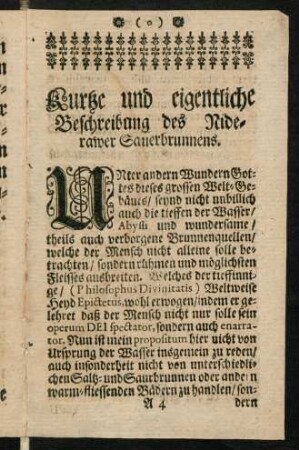 (o)
Kurtze und eigentliche
Beschreibung des Nide-
rawer Sauerbrunnens.
UNter andern Wundern Got-
tes dieses grossen Welt-Ge-
bäues/ seynd nicht unbillich
auch die tieffen der Wasser/
Abyssi und wundersame/
theils auch verborgene Brunnenquellen/
welche der Mensch nicht alleine solle be-
trachten/ sondern rühmen und möglichsten
Fleisses ausbreiten. Welches der tieffinni-
ge/ (Philosophus Divinitatis) Weltweise
Heyd Epictetus, wohl erwogen/ indem er ge-
lehret daß der Mensch nicht nur solle sein
operum DEI spectator, sondern auch enarra-
tor. Nun ist mein propositum hier nicht von
Ursprung der Wasser insgemein zu reden/
auch insonderheit nicht von unterschiedli-
chen Saltz- und Saurbrunnen oder andern
warm-fliessenden Bädern zu handlen/ son-
A 4 dern